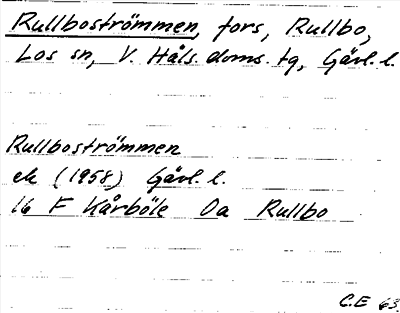 Rullboströmmen, fors, Rullbo,
Los sn, V. Häls. doms. tg, Gävl. l.
Rullboströmmen
ek (1958) Gävl. l.
16 F Kårböle 0a Rullbo
C.E 63.